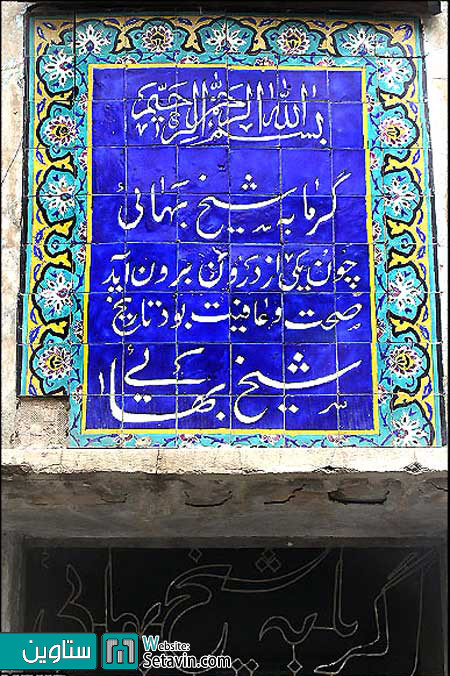 بسم الله الرحمن الرحیم
گرمابه شیخ بهائی
چون یکی از درون برون آید
صحت و عافیت بود تاریخ
شیخ بهائی
گرمابه شیخ بهائی
ستاوین
Website:
Setavin.com